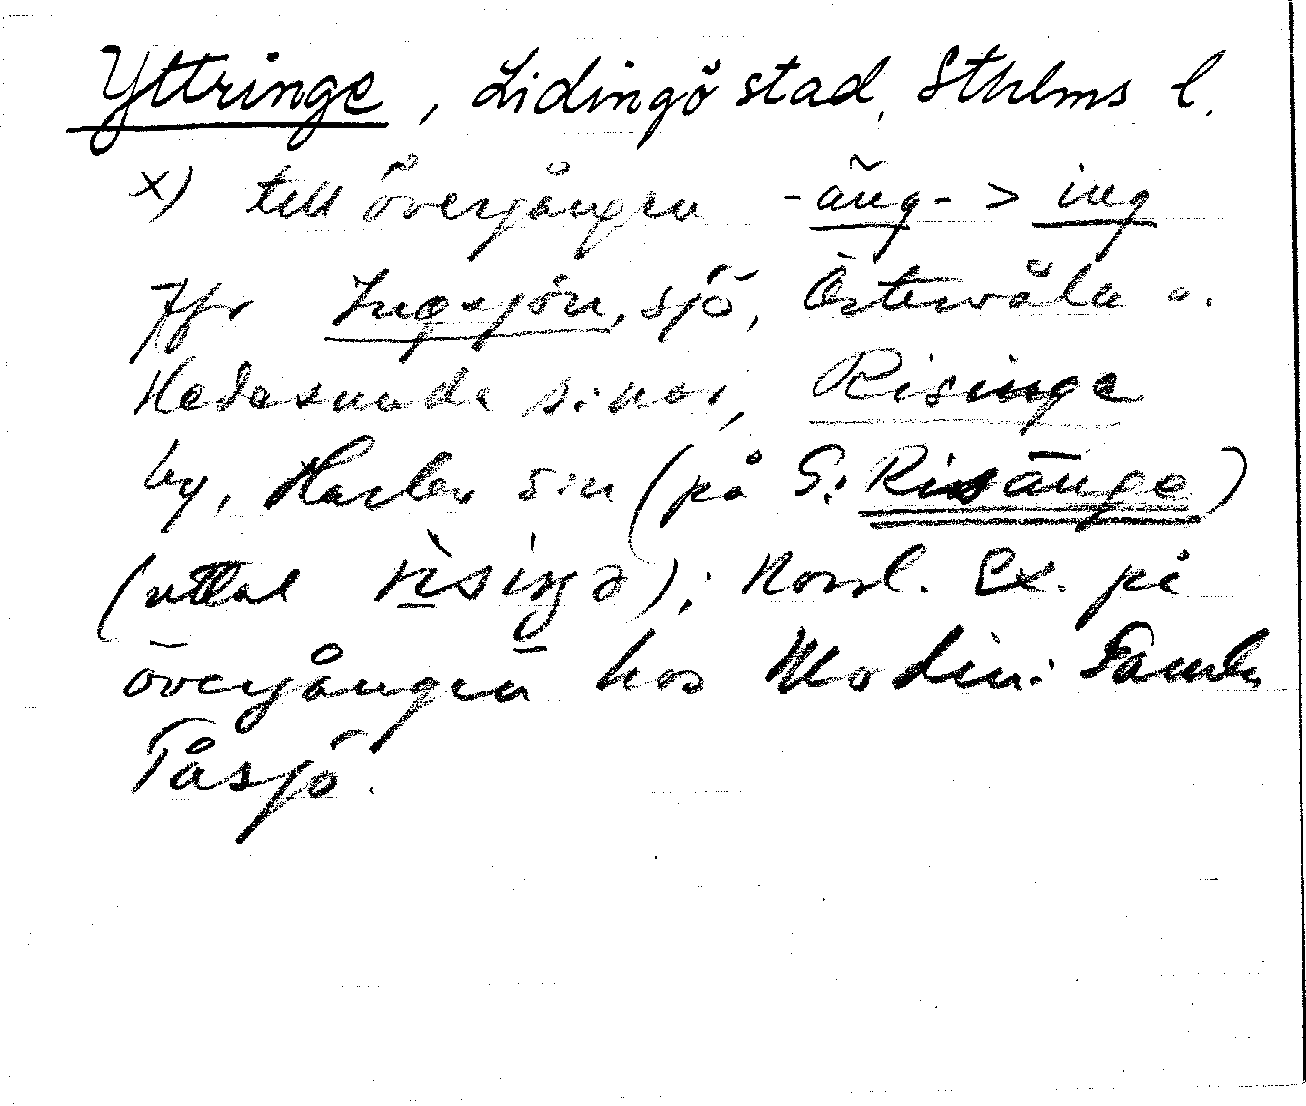 Yttringe, Lidingö stad, Sthlms l.
x) till övergången -äng- > ing
Jfr Ingsjön, sjö, Östervåla o.
Hedesunda s:nar, Risinge
by, Harbo sn (på G: Risänge)
(uttal risiŋga); Norrl. Ex. på
övergången hos Modin: Gamla
Tåsjö.